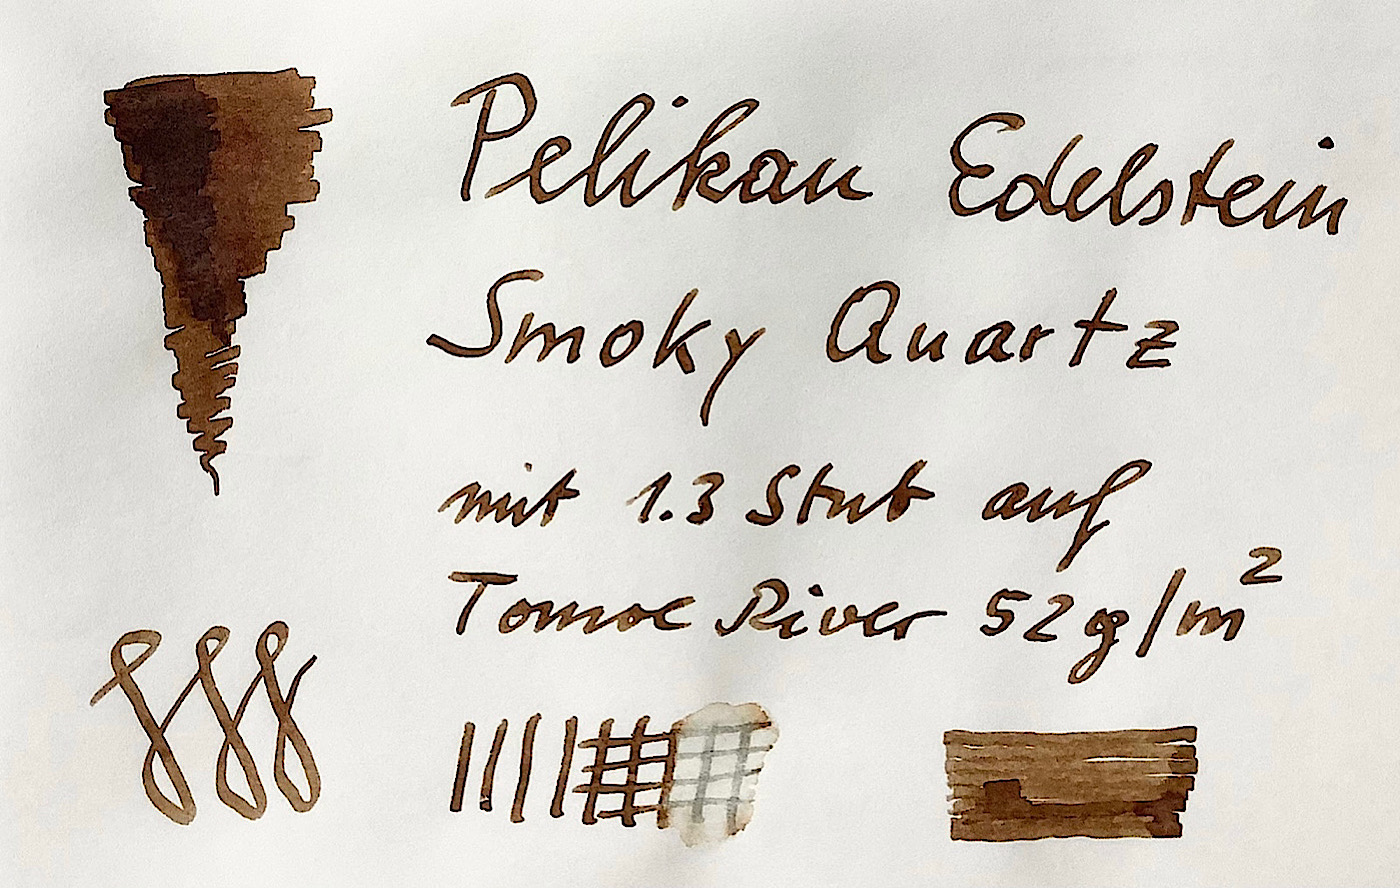 Pelikan Edelstein
Smoky Quartz
mit 1.3 Stub auf
Tomoe River 52 g/m²